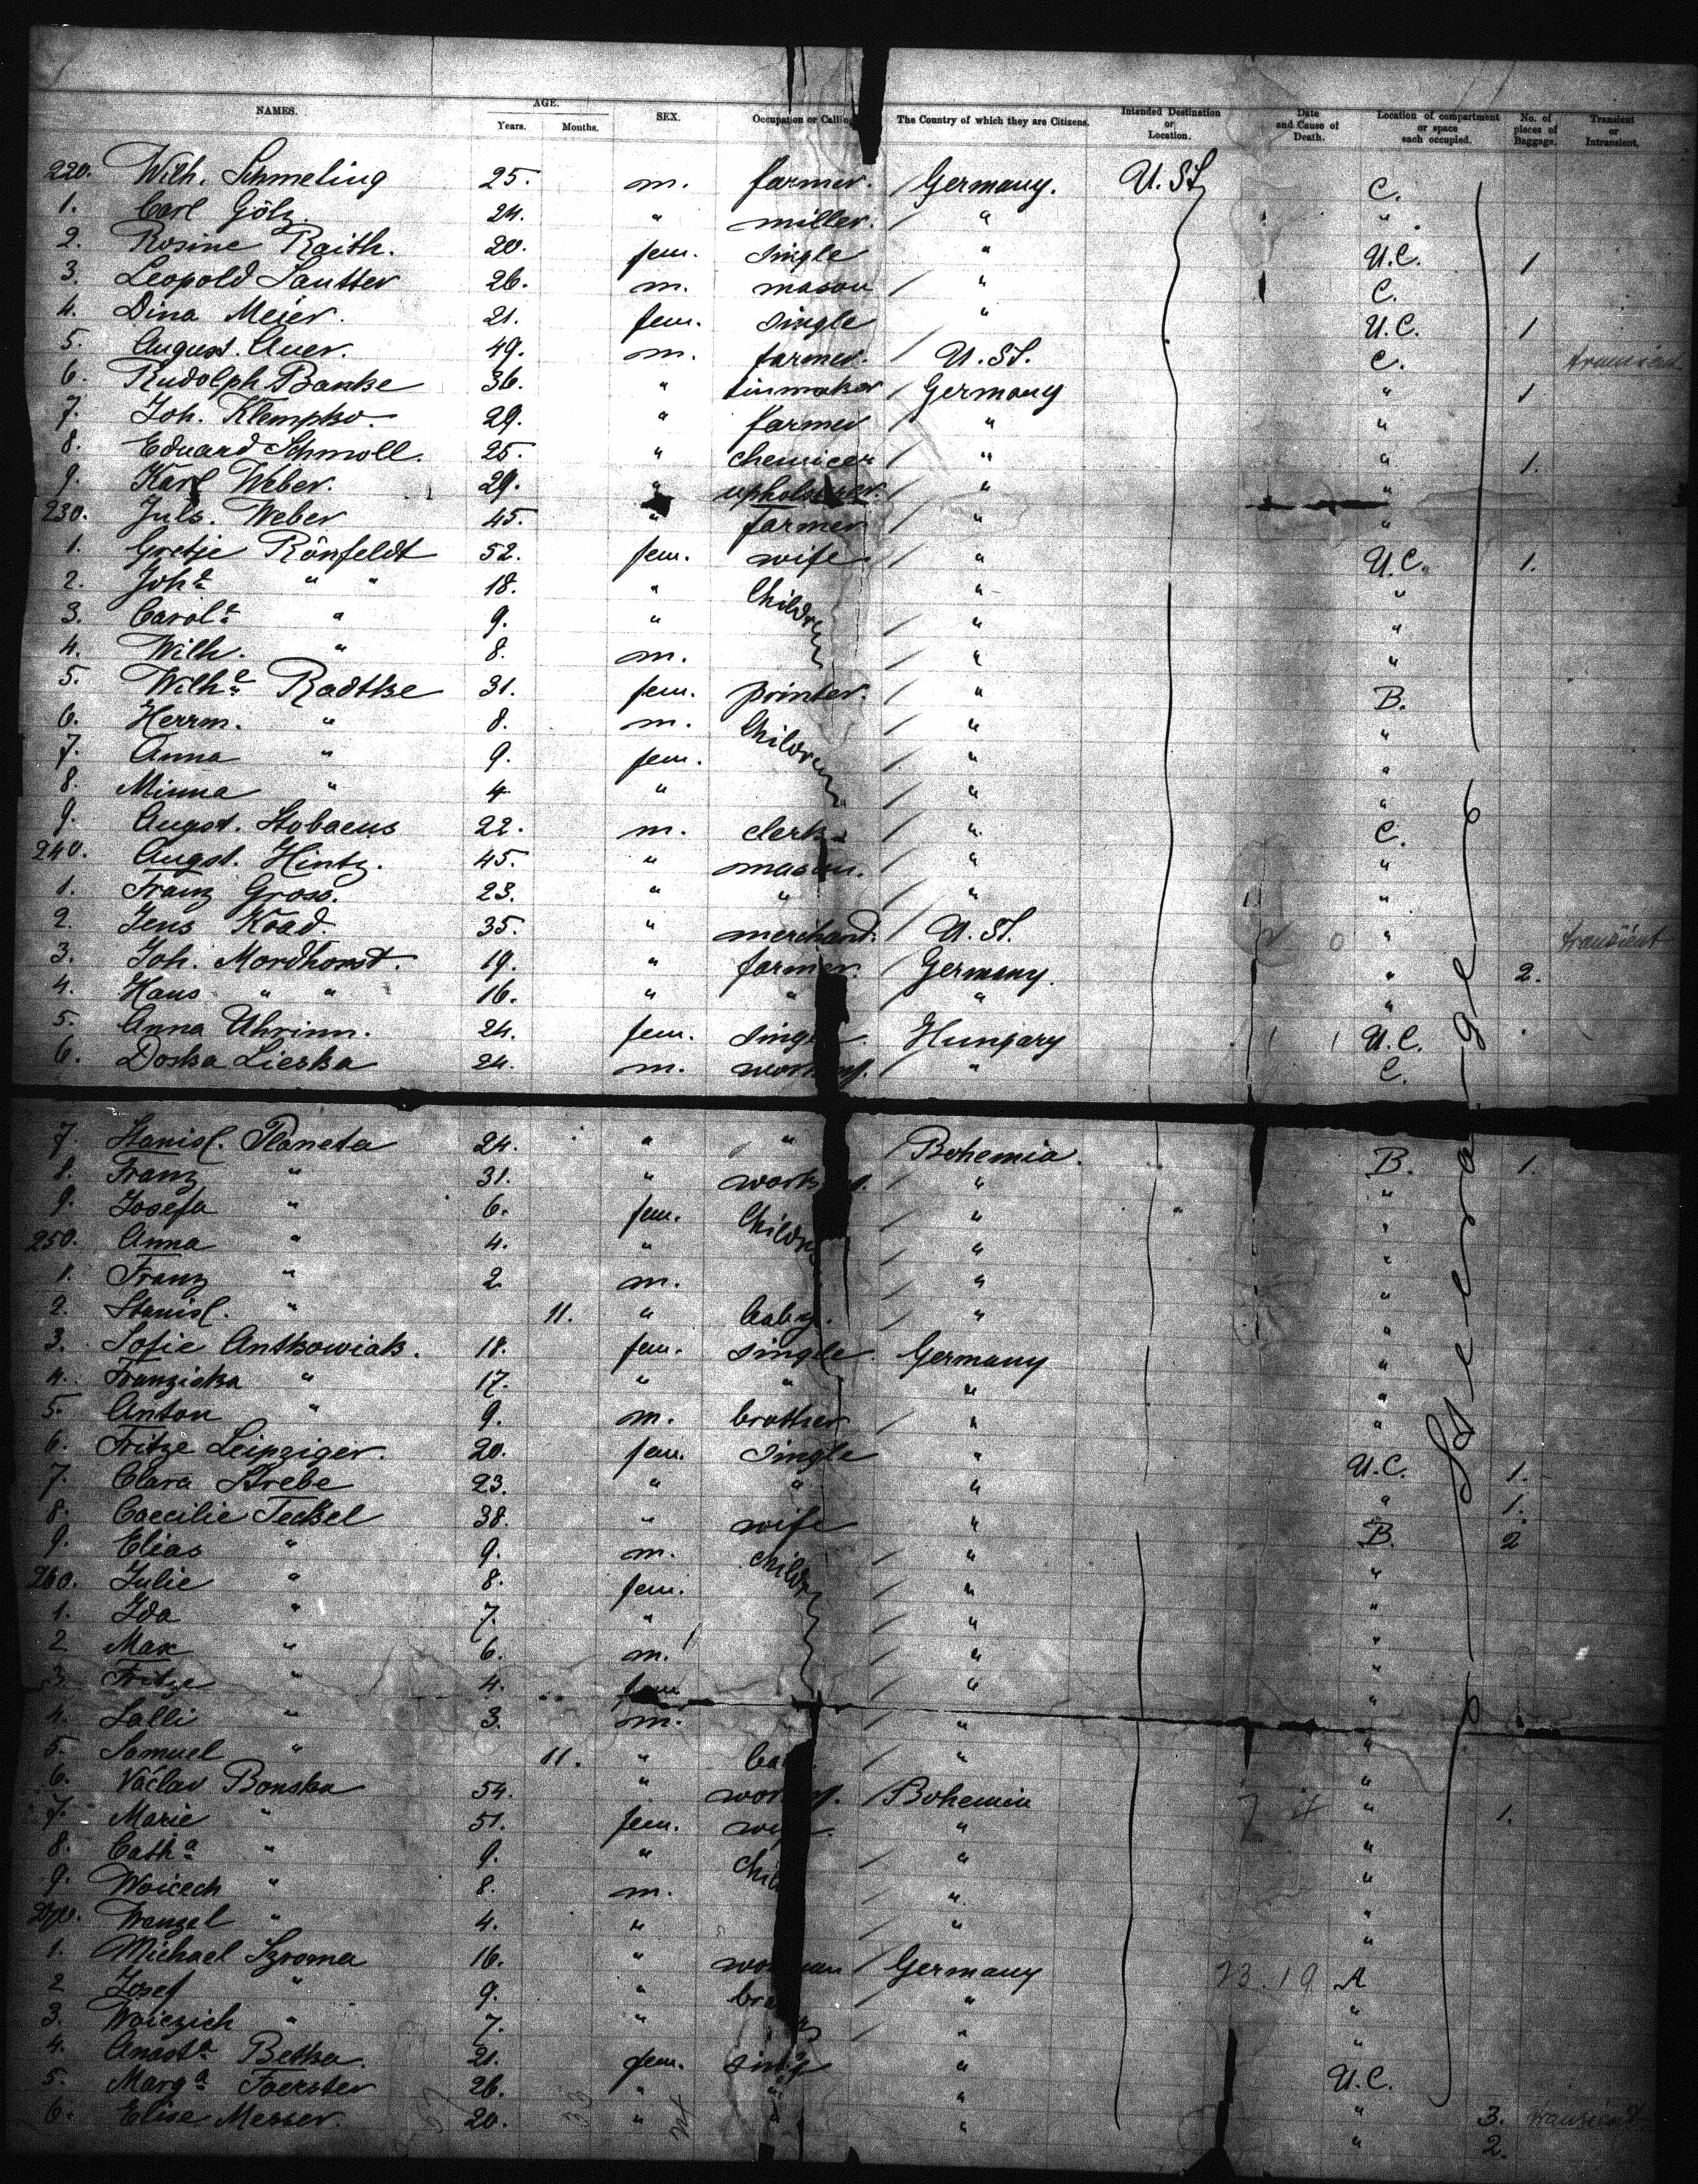 NAMES. AGE. Years. Months. SEX. Occupation or Calling The Country of which they are Citizens. Intended Destination or Location. Date and Cause of Death. Location of compartment or space each occupied. No. of pieces of Baggage. Transient or Intransient.
220. Wilh. Schmeling 25. m. farmer. / Germany. U. St. C.
1. Carl Gölz. 24. " miller. / " "
2. Rosine Raith. 20. fem. single " U.C. 1
3. Leopold Sautter 26. m. mason / " C.
4. Dina Meier. 21. fem. single " U.C. 1
5. August. Auer. 49. m. farmer. / U. St. C. transient
6. Rudolph Banke 36. " tinmaker / Germany " 1
7. Joh. Klempko. 29. " farmer / " "
8. Eduard Schmoll. 25. " chemicer / " " 1.
9. Karl Weber. 29. " / " "
230. Juls. Weber 45. " farmer / " "
1. Gretje Rönfeldt 52. fem. wife / " U.C. 1.
2. Joha " " 18. " Children " "
3. Carola " 9. " / " "
4. Wilh. " 8. m. / " "
5. Wilhe Radtke 31. fem. printer. / " B.
6. Herrm. " 8. m. Children / " "
7. Anna " 9. fem. / " "
8. Minna " 4. " / " "
9. Augst. Stobaeus 22. m. clerk / " C.
240. Augst. Hintz. 45. " mason. / " "
1. Franz Gross. 23. " " / " "
2. Jens Koad. 35. " merchand. / U. St. " transient
3. Joh. Mordhorst. 19. " farmer. / Germany. " 2.
4. Hans " " 16. " " / " "
5. Anna Uhrinn. 24. fem. / Hungary U.C.
6. Doska Lieska 24. m. / " C.
7. Stanisl. Planeta 24. " " Bohemia. B. 1.
8. Franz " 31. " " "
9. Josefa " 6. fem. / " "
250. Anna " 4. " / " "
1. Franz " 2 m. / " "
2. Stanisl. " 11. " baby. / " "
3. Sofie Antkowiak. 18. fem. single. Germany "
4. Franziska " 17. " " " "
5. Anton " 9. m. brother / " "
6. Fritze Leipziger. 20. fem. single " U.C. 1.
7. Clara Strebe 23. " " " " 1.
8. Caecilie Teckel 38. " wife " B. 2
9. Elias " 9. m. / " "
260. Julie " 8. fem. / " "
1. Ida " 7. " / " "
2 Max " 6. m. / " "
3. Fritze " 4. fem. / " "
4. Salli " 3. m. / " "
5. Samuel " 11. " / " "
6. Václav Bonska 54. " / Bohemia " 1.
7. Marie " 51. fem. " "
8. Catha " 9. " / " "
9. Woicech " 8. m. " "
270. Wenzel " 4. " " "
1. Michael Szroma 16. " / Germany A
2 Josef " 9. " " "
3. Woiczich " 7. " " "
4. Anasta Betka. 21. fem. " U.C.
5. Marga Foerster 26. " " " " 3. transient
6. Elise Messer. 20. " " " " 2.
Steerage